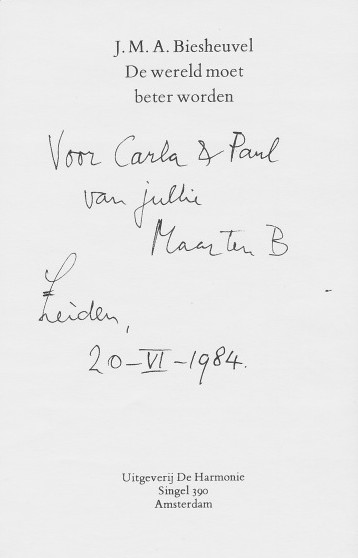 J. M. A. Biesheuvel
De wereld moet
beter worden
Voor Carla & Paul
van jullie
Maarten B
Leiden,
20-VI-1984.
Uitgeverij De Harmonie
Singel 390
Amsterdam